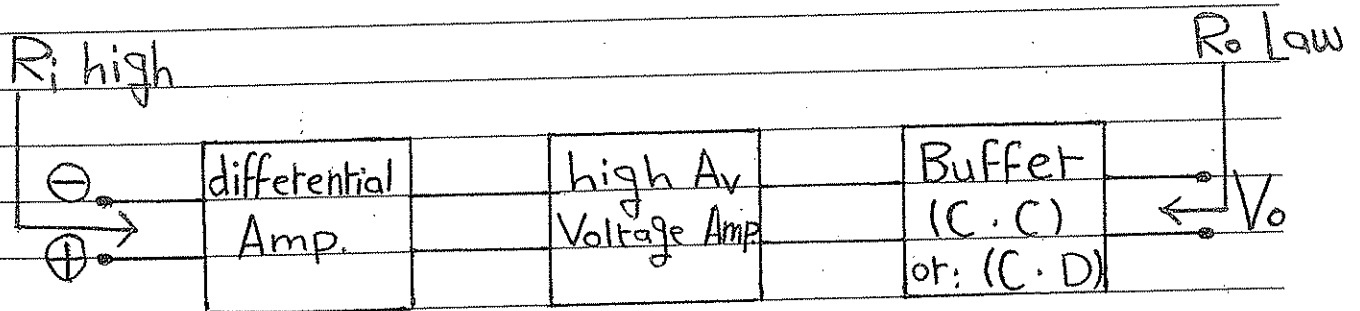 Ri high
Ro Law
⊖
differential
Amp.
⊕
high Av
Voltage Amp
Buffer
(C.C)
or: (C.D)
Vo